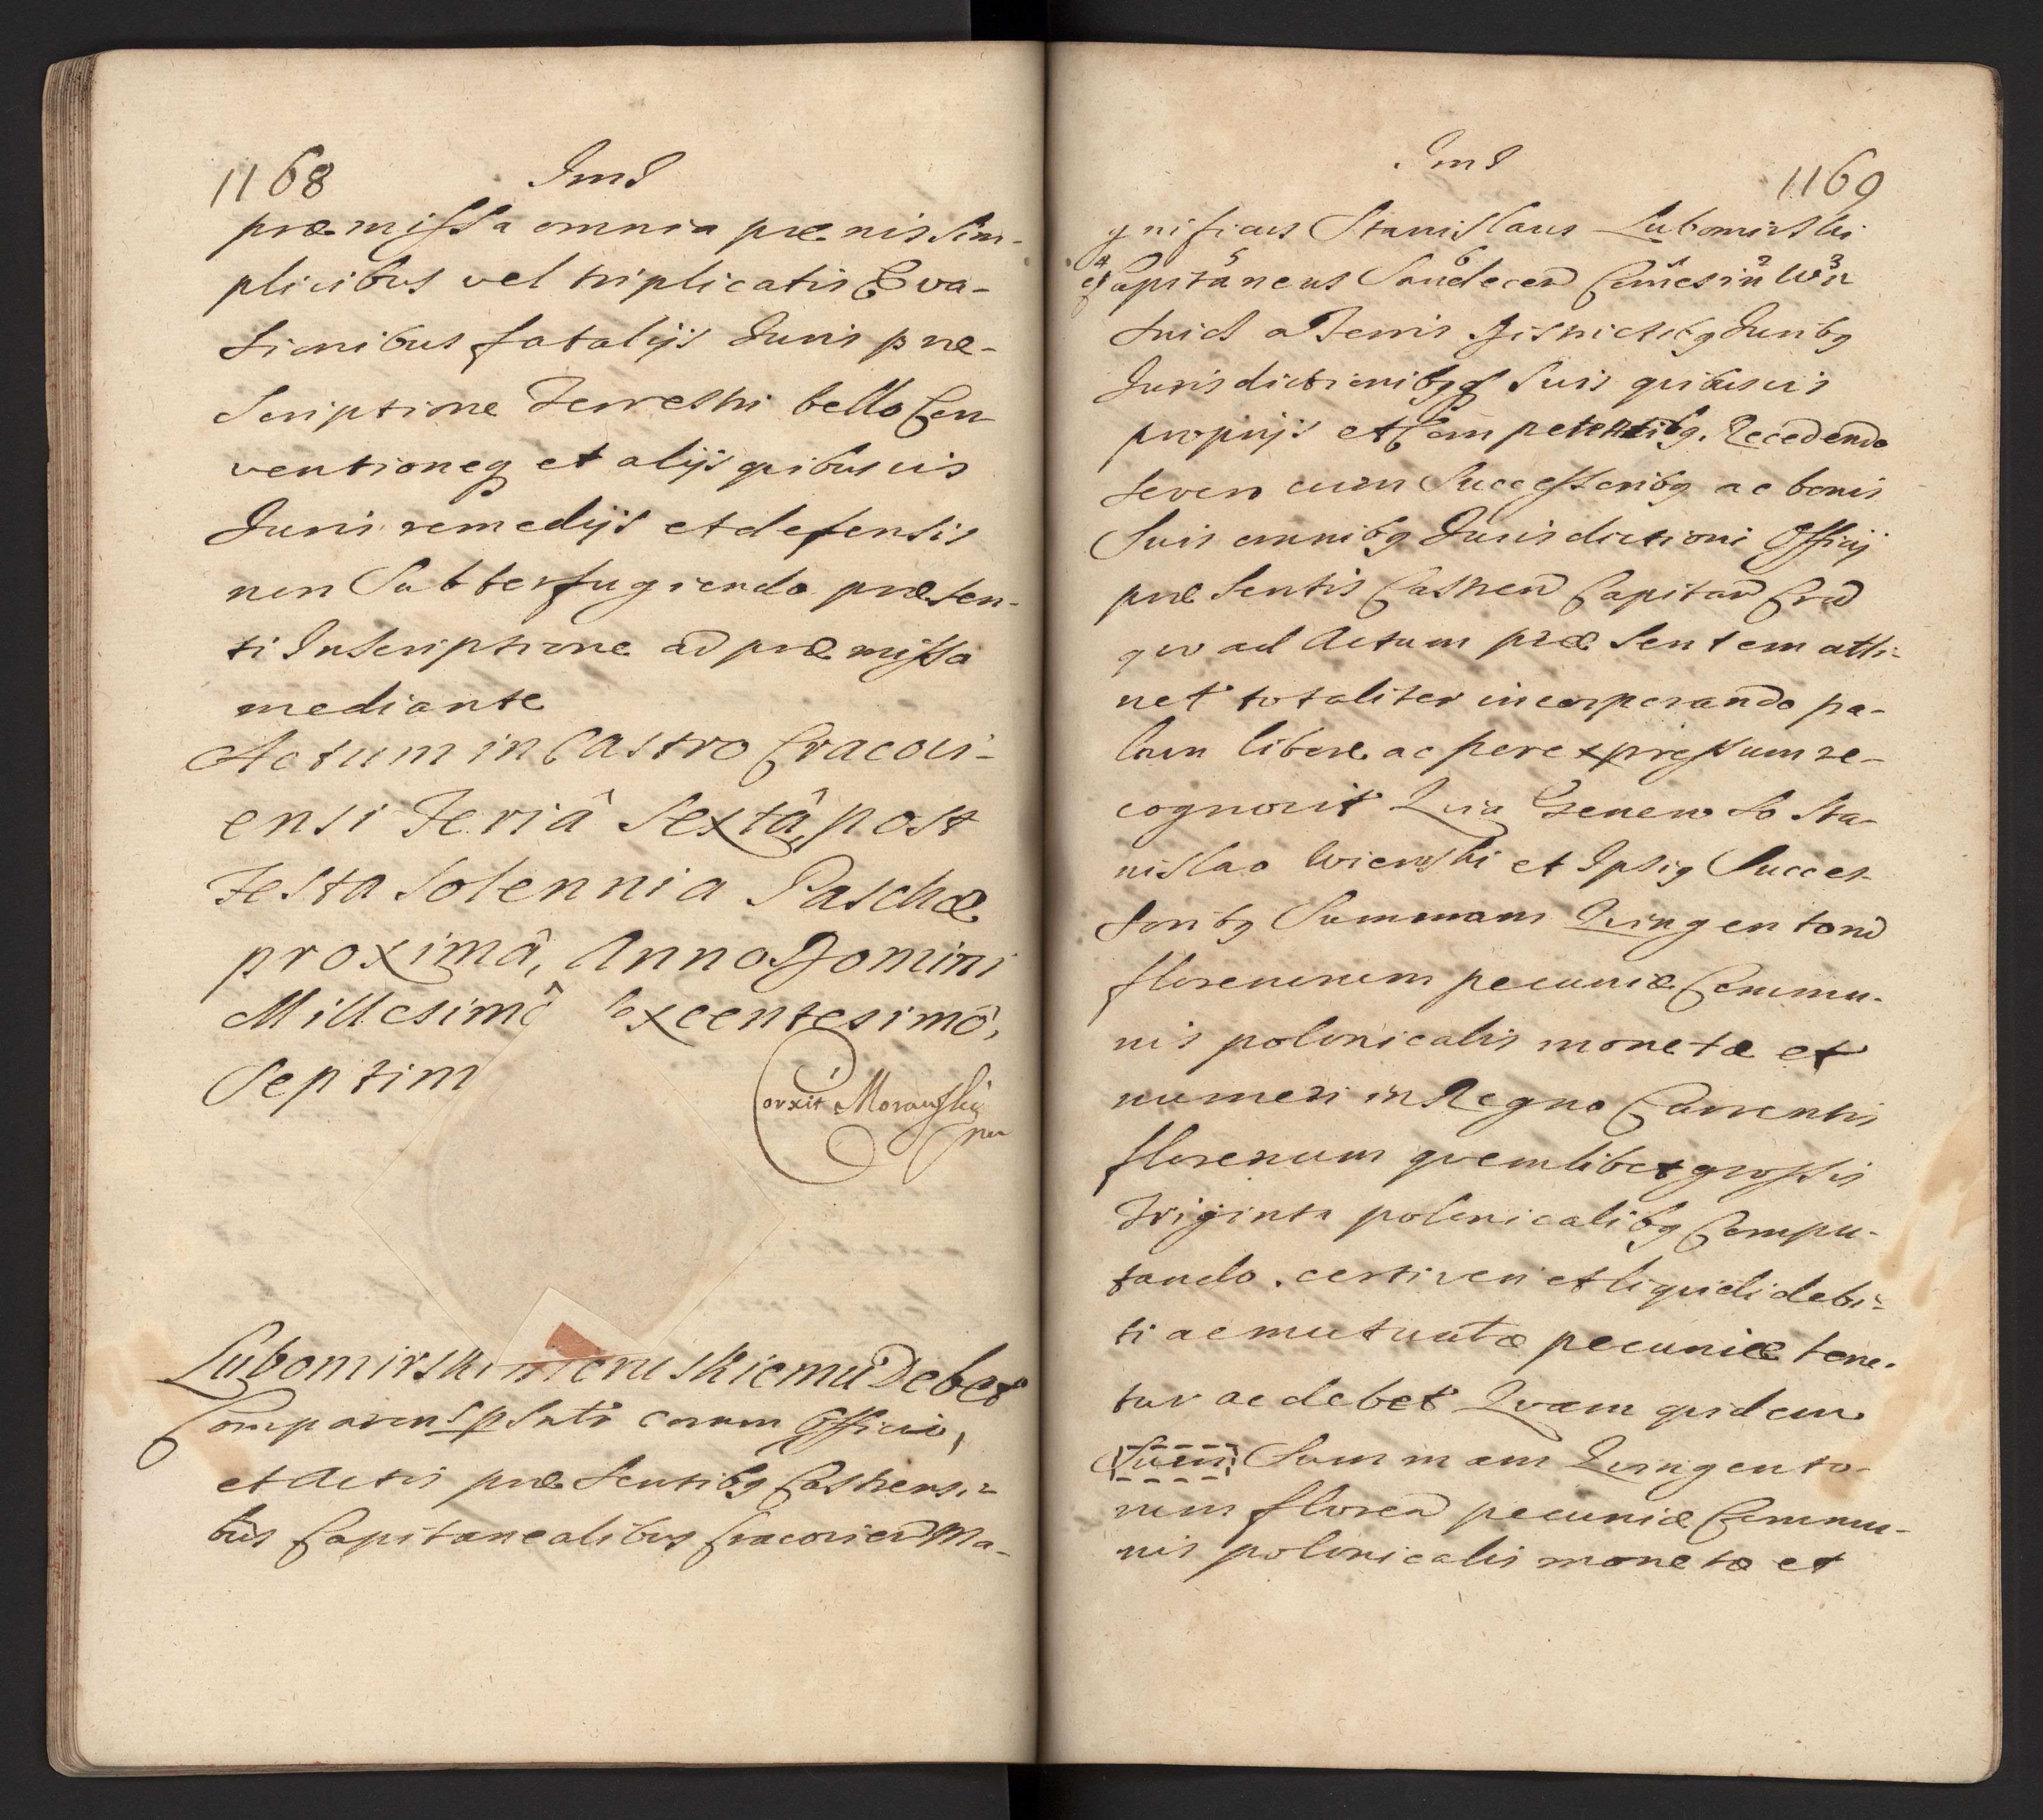 1168 Ind
præmissa omnia pænis sim-
plicibus vel triplicatis Eva-
sionibus fatalijs Juris præ-
scriptione Terrestri bello Con
ventioneq et alijs quibusvis
Juris remedijs et defensis
non Subterfugiendo præsen-
ti Inscriptione ad præmissa
mediante
Actum in Castro Cracovi-
ensi Feriâ sextâ, post
Festa Solennia Paschæ
proximâ, Anno Domini
Millesimô excentesimô,
Septim
Corxit Morawski
mp
Lubomirski Debet
Comparens psntr coram Officio,
et Actis præsentibq Castrensi-
bus Capitanealibus Cracovien Ma-
Ind 1169
gnificus Stanislaus Lubomirski
4 5 6 1 2 3
et Capitaneus Sandecen Comes in Wi
snicz a Terris Districtibq Juribq
Jurisdictionibqq suis quibusvis
proprijs et Competentibq. Recedendo
se vero cum Successoribq ac bonis
Suis omnibq Jurisdictioni Officij
præsentis Castren Capitan Crac
quo ad Actum præsentem atti-
net totaliter incorporando pa-
lam libere ac per expressum re-
cognovit Quia Generoso Sta-
nislao Wierzski et Ipsiq Succes-
soribq Summam Quingentoru
florenorum pecuniæ Commu-
nis polonicalis monetæ et
numeri in Regno Currentis
florenum quemlibet grossis
Triginta polonicalibq Compu-
tando. certi veri et liquidi debi-
ti ac mutuatæ pecuniæ tene-
tur ac debet Quam quidem
Sum Summam Quingento-
rum floren pecuniæ Commu-
nis polonicalis monetæ et